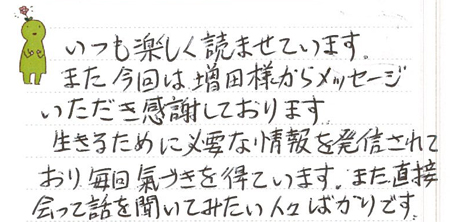 いつも楽しく読ませています。
また今回は増田様からメッセージ
いただき感謝しております。
生きるために必要な情報を発信されて
おり毎回氣づきを得ています。また直接
会って話を聞いてみたい人々ばかりです。